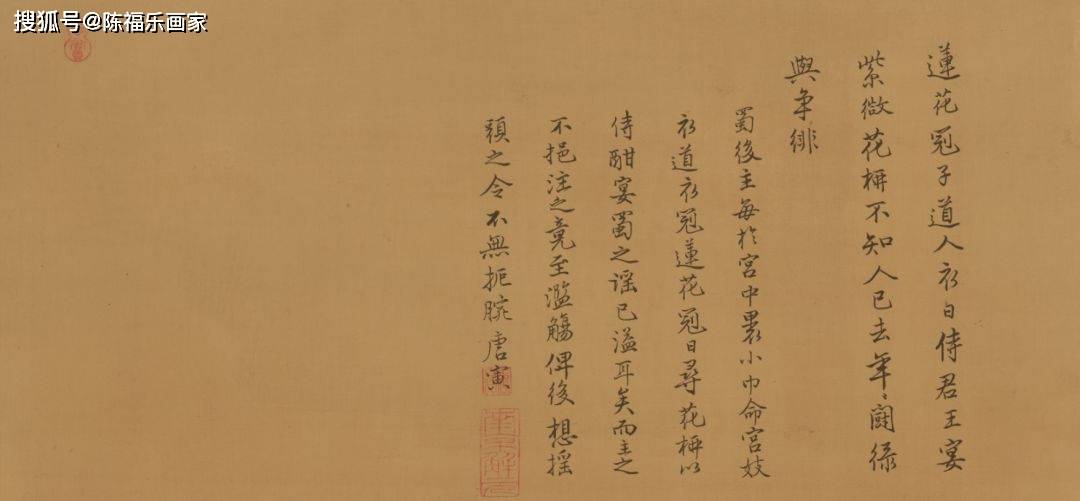 搜狐号@陈福乐画家
蓮花冠子道人衣日侍君王宴
紫微花柳不知人已去年〻鬪綠
與爭緋
蜀後主每於宮中裹小巾命宮妓
衣道衣冠蓮花冠日尋花柳以
侍酣宴蜀之謠已溢耳矣而主之
不挹注之竟至濫觴俾後想搖
頭之令不無扼腕唐寅
南京解元